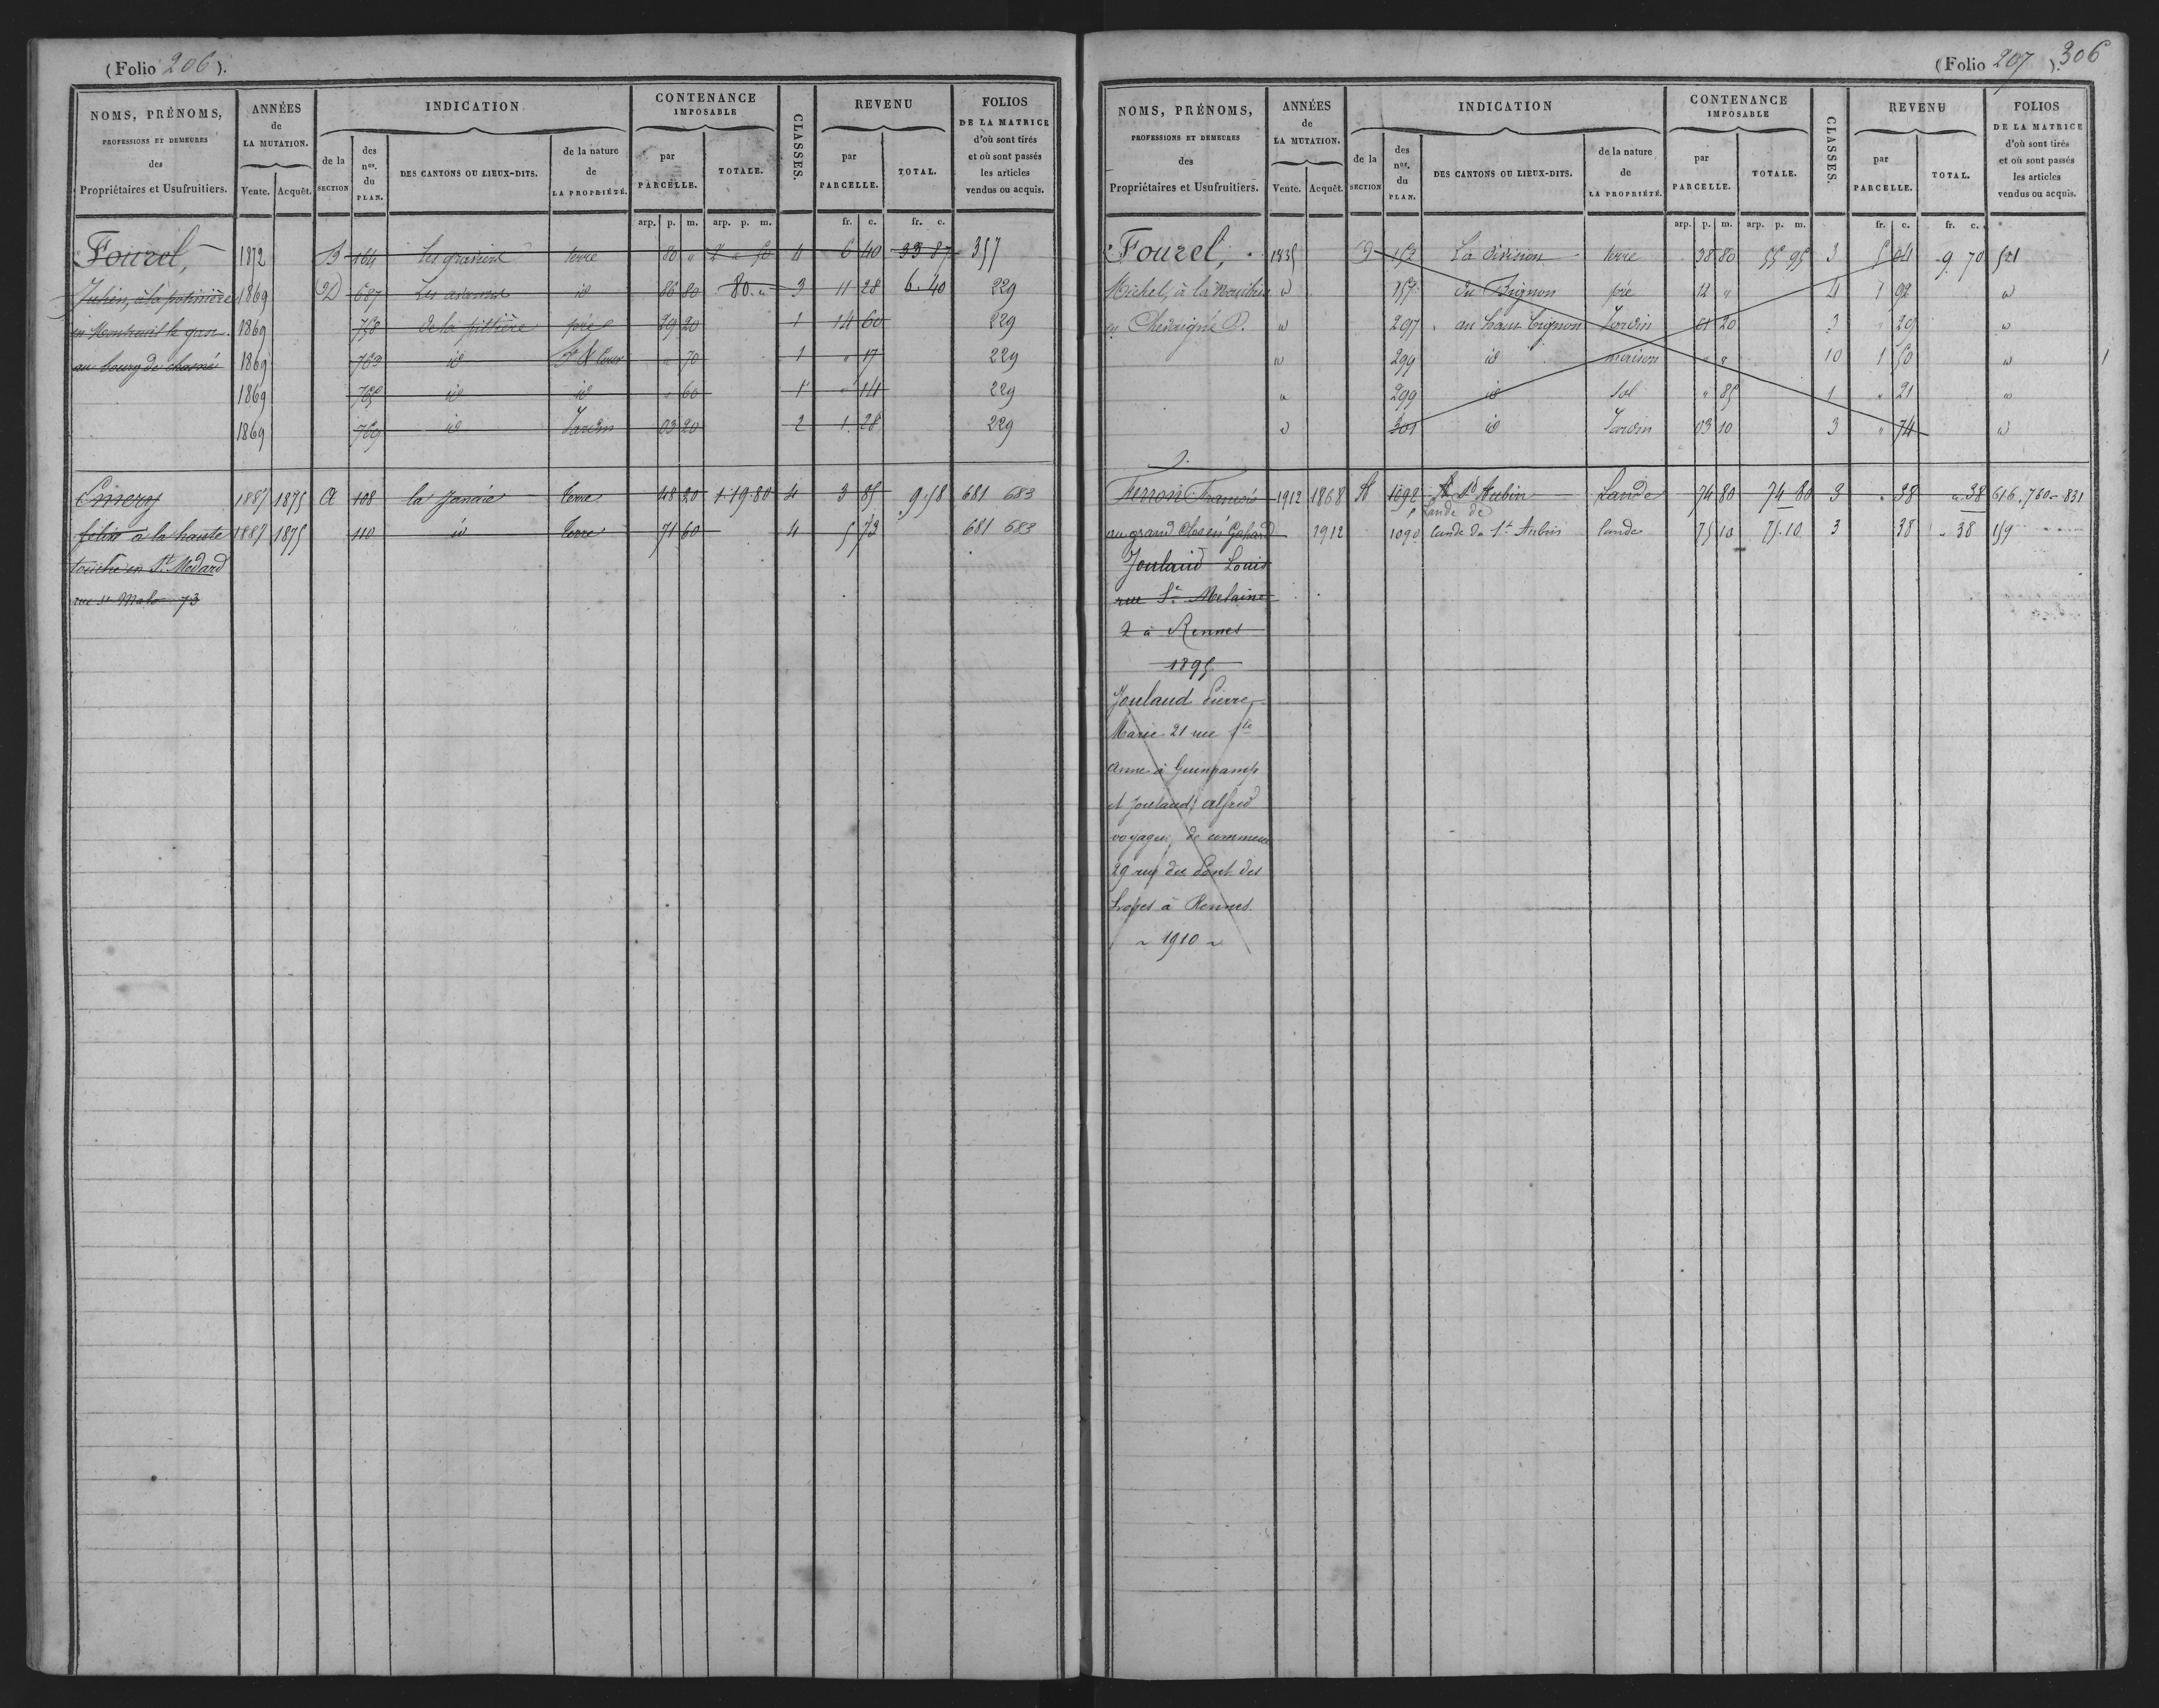 (Folio 206).
NOMS, PRÉNOMS, PROFESSIONS ET DEMEURES des Propriétaires et Usufruitiers. | ANNÉES de LA MUTATION. Vente. Acquêt. | INDICATION de la SECTION des nos. du PLAN. DES CANTONS OU LIEUX-DITS. de la nature de LA PROPRIÉTÉ. | CONTENANCE IMPOSABLE par PARCELLE. TOTALE. | CLASSES. | REVENU par PARCELLE. TOTAL. | FOLIOS DE LA MATRICE d'où sont tirés et où sont passés les articles vendus ou acquis.
arp. p. m. arp. p. m. fr. c. fr. c.
Fouzel, 1872 B 164 Les graviers terre 80 " 2 " 50 4 6 40 33 87 357
Julien, à la potinière 1869 D 687 Les id 86 80 80 " 3 11 28 6.40 229
en Montreuil le gast. 1869 758 de la piltière pré 29 20 1 14 60 229
au bourg de chasné 1869 763 id Sol & Cour " 70 1 " 17 229
1869 765 id id " 60 1 " 14 229
1869 769 id Jardin 03 20 2 1.28 229
Emery 1887 1875 A 108 la Janaie terre 48 20 1.19.80 4 3 85 9.58 681 683
félix à la haute 1887 1875 110 id terre 71 60 4 5 73 681 683
touche en St Medard
rue St Malo 73
(Folio 207). 306
NOMS, PRÉNOMS, PROFESSIONS ET DEMEURES des Propriétaires et Usufruitiers. | ANNÉES de LA MUTATION. Vente. Acquêt. | INDICATION de la SECTION des nos. du PLAN. DES CANTONS OU LIEUX-DITS. de la nature de LA PROPRIÉTÉ. | CONTENANCE IMPOSABLE par PARCELLE. TOTALE. | CLASSES. | REVENU par PARCELLE. TOTAL. | FOLIOS DE LA MATRICE d'où sont tirés et où sont passés les articles vendus ou acquis.
arp. p. m. arp. p. m. fr. c. fr. c.
Fouzel, 1835 D 152 La division terre 38 80 55 95 3 5 04 9 70 521
Michel, à la id 157 du Bignon pré 12 " 4 1 92 id
en Chevaigné P. id 297 au haut bignon Jardin 01 20 3 " 29 id
id 299 id maison " " 10 1 50 id 1
id 299 id Sol " 85 1 " 21 id
id 301 id Jardin 03 10 3 " 74 id
Ferron François 1912 1868 A 1092 St Aubin Lande 74 80 74 80 3 " 38 " 38 616.760-831
au grand Clos en Gahard 1912 1090 Lande de lande de St Aubin lande 75 10 75.10 3 38 " 38 159
Joulaud Louis
rue St Melaine
2 à Rennes
1895
Joulaud Pierre
Marie 21 rue Ste
Anne à Guingamp
et Joulaud Alfred
voyageur de commerce
29 rue du Pont des
Loges à Rennes
~ 1910 ~